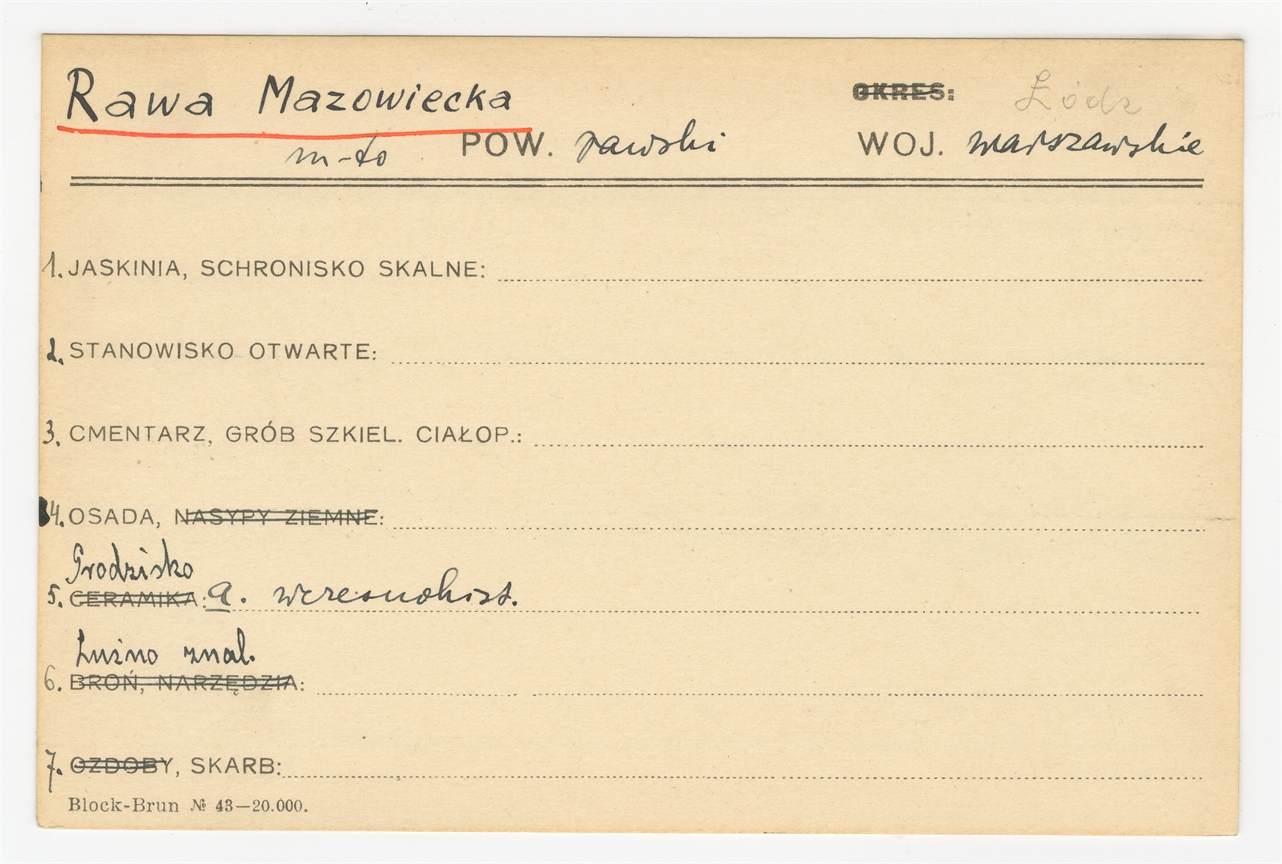 Rawa Mazowiecka OKRES: Łódz
m-to POW. rawski WOJ. warszawskie
1. JASKINIA, SCHRONISKO SKALNE:
2. STANOWISKO OTWARTE:
3. CMENTARZ, GRÓB SZKIEL. CIAŁOP.:
4. OSADA, NASYPY ZIEMNE:
Grodzisko
5. CERAMIKA: a. wczesnohist.
Luźno znal.
6. BROŃ, NARZĘDZIA:
7. OZDOBY, SKARB:
Block-Brun № 43—20.000.